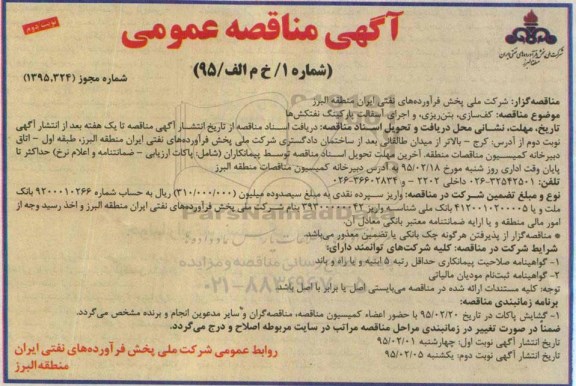 نوبت دوم
آگهی مناقصه عمومی
شرکت ملی پخش فرآورده‌های نفتی ایران
منطقه البرز
(شماره ۱/ خ م الف/۹۵)
شماره مجوز (۱۳۹۵،۳۲۴)
مناقصه‌گزار: شرکت ملی پخش فرآورده‌های نفتی ایران منطقه البرز
موضوع مناقصه: کف‌سازی، بتن‌ریزی، و اجرای آسفالت پارکینگ نفتکش‌ها
تاریخ، مهلت، نشانی محل دریافت و تحویل اسناد مناقصه: دریافت اسناد مناقصه از تاریخ انتشار آگهی مناقصه تا یک هفته بعد از انتشار آگهی
نوبت دوم از آدرس: کرج – بالاتر از میدان طالقانی بعد از ساختمان دادگستری شرکت ملی پخش فرآورده‌های نفتی ایران منطقه البرز، طبقه اول – اتاق
دبیرخانه کمیسیون مناقصات منطقه. آخرین مهلت تحویل اسناد مناقصه توسط پیمانکاران (شامل: پاکات ارزیابی – ضمانتنامه و اعلام نرخ) حداکثر تا
پایان وقت اداری روز شنبه مورخ ۹۵/۰۲/۱۸ به آدرس دبیرخانه کمیسیون مناقصات منطقه البرز
تلفن: ۳۲۵۴۲۵۰۱-۰۲۶ داخلی ۲۲۰۲ – و ۳۶۶۰۲۸۳۴-۰۲۶
نوع و مبلغ تضمین شرکت در مناقصه: واریز سپرده نقدی به مبلغ سیصدوده میلیون (۳۱۰/۰۰۰/۰۰۰) ریال به حساب شماره ۹۲۰۰۰۱۰۲۶۶ بانک
ملت و یا ۴۱۲۰۰۱۰۲۰۰۰۵ بانک ملی شناسه واریز ۳۹۳۰۰۰۰۰۰۰۴۲ بنام شرکت ملی پخش فرآورده‌های نفتی ایران منطقه البرز و اخذ رسید وجه از
امور مالی منطقه و یا ارایه ضمانتنامه معتبر بانکی معادل آن
* مناقصه‌گزار از پذیرفتن هرگونه چک بانکی یا تضمین معذور می‌باشد.
شرایط شرکت در مناقصه: کلیه شرکت‌های توانمند دارای:
۱- گواهینامه صلاحیت پیمانکاری حداقل رتبه ۵ ابنیه و یا راه و باند
۲- گواهینامه ثبت‌نام مودیان مالیاتی
توجه: کلیه مستندات ارائه شده در مناقصه می‌بایستی اصل یا برابر با اصل باشد
برنامه زمانبندی مناقصه:
۱- گشایش پاکات در تاریخ ۹۵/۰۲/۲۰ با حضور اعضاء کمیسیون مناقصه، مناقصه‌گران و سایر مدعوین انجام و برنده مشخص می‌گردد.
ضمناً در صورت تغییر در زمانبندی مراحل مناقصه مراتب در سایت مربوطه اصلاح و درج می‌گردد.
تاریخ انتشار آگهی نوبت اول: چهارشنبه ۹۵/۰۲/۰۱
تاریخ انتشار آگهی نوبت دوم: یکشنبه ۹۵/۰۲/۰۵
روابط عمومی شرکت ملی پخش فرآورده‌های نفتی ایران
منطقه البرز
ParsNamadData
۰۲۱-۸۸۳۴۹۶۷۰